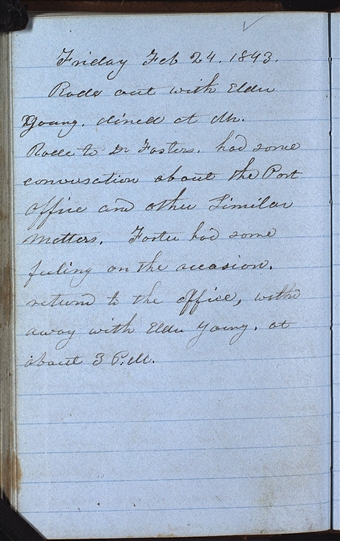 Friday Feb 24. 1843.
Rode out with Elder
Young. dined at Mr.
Rode to Dr Fosters. had some
conversation about the Post
office and other Similar
Matters. Foster had some
feeling on the occasion.
return to the office, with
away with Elder Young. at
about 3 P.M.